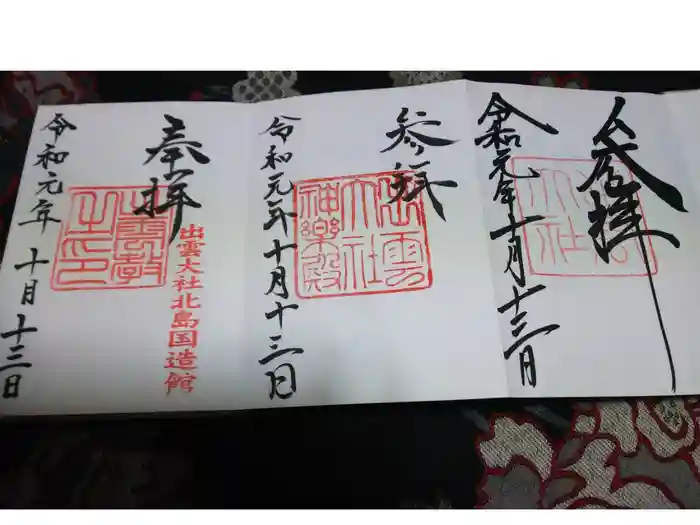 参拝
令和元年十月十三日
参拝
出雲
大社
神樂殿
令和元年十月十三日
奉拝
出雲大社北島国造館
出雲教
之印
令和元年十月十三日